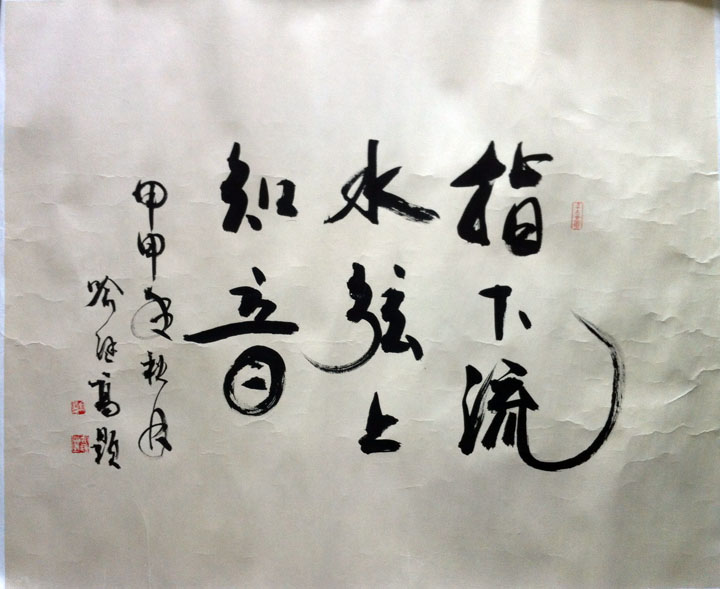 指下流
水弦上
知音
甲申年秋月
喻继高题